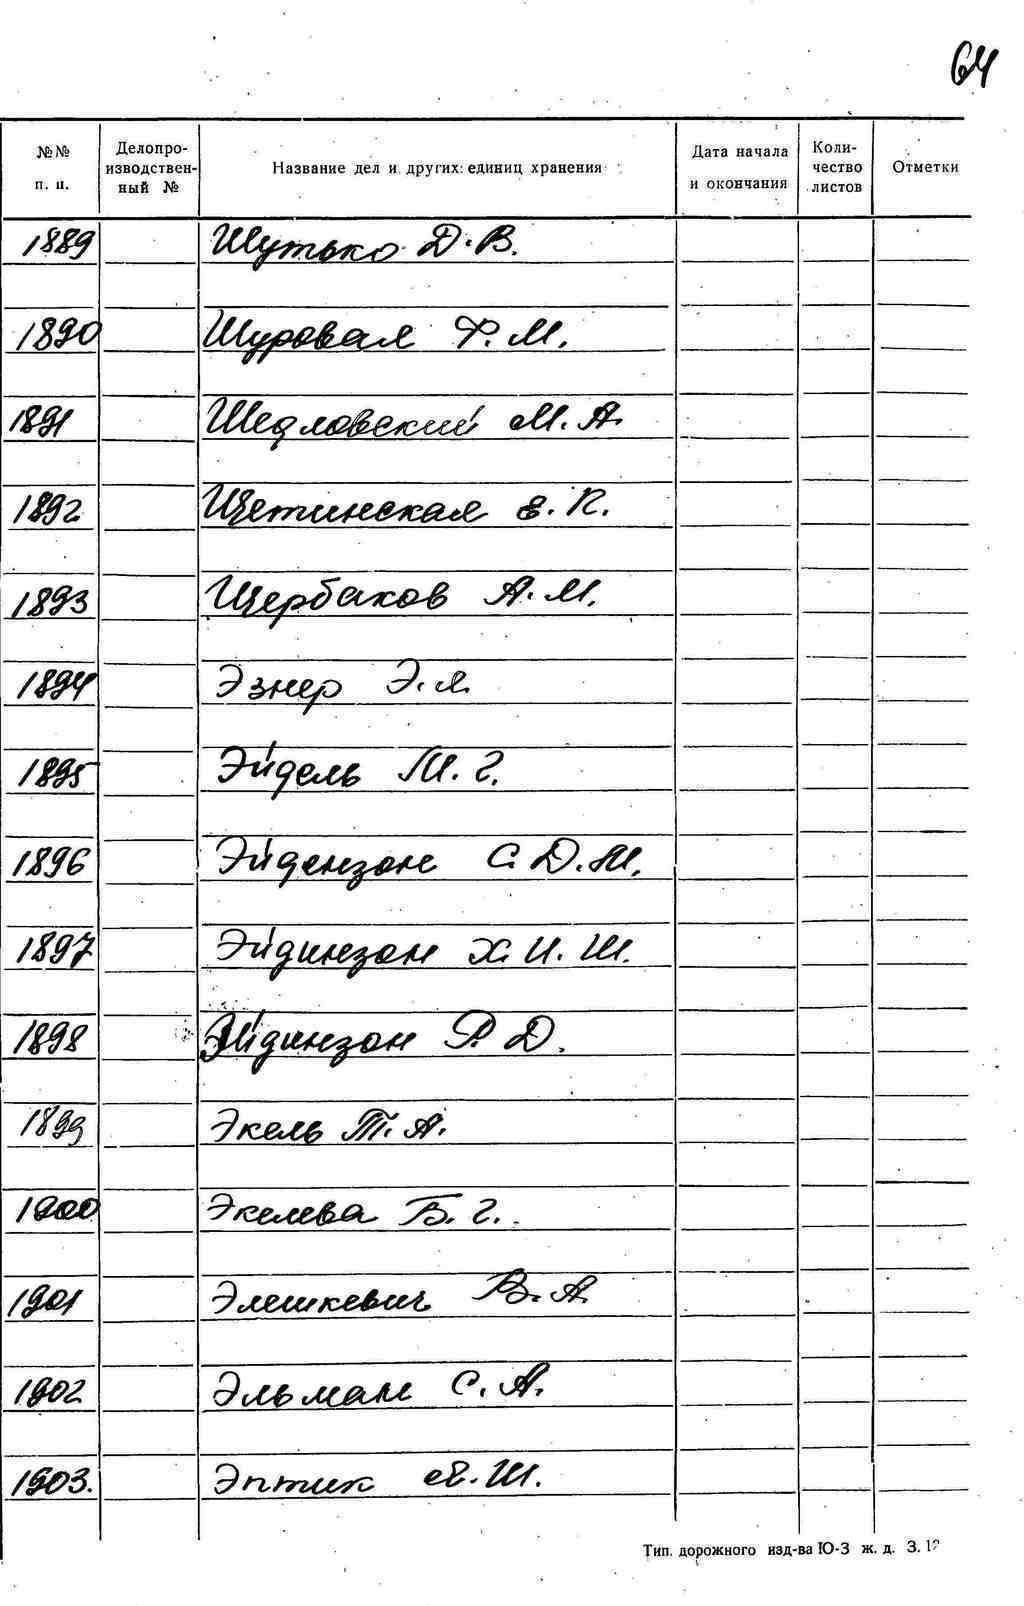 64
№№ п. п. Делопроизводственный № Название дел и других единиц хранения Дата начала и окончания Количество листов Отметки
1889 Шутько Д.В.
1890 Шуровая Ф.М.
1891 Шедловский М.А.
1892 Щетинская Е.К.
1893 Щербаков А.М.
1894 Эзнер Э.Я.
1895 Эйдель М.Г.
1896 Эйдензон С.Д.М.
1897 Эйдинзон Х.И.Ш.
1898 Эйдинзон Р.Д.
1899 Экель Т.А.
1900 Экелева Б.Г.
1901 Элешкевич В.А.
1902 Эльман С.А.
1903. Эптик Е.Ш.
Тип. дорожного изд-ва Ю-З ж. д. З.